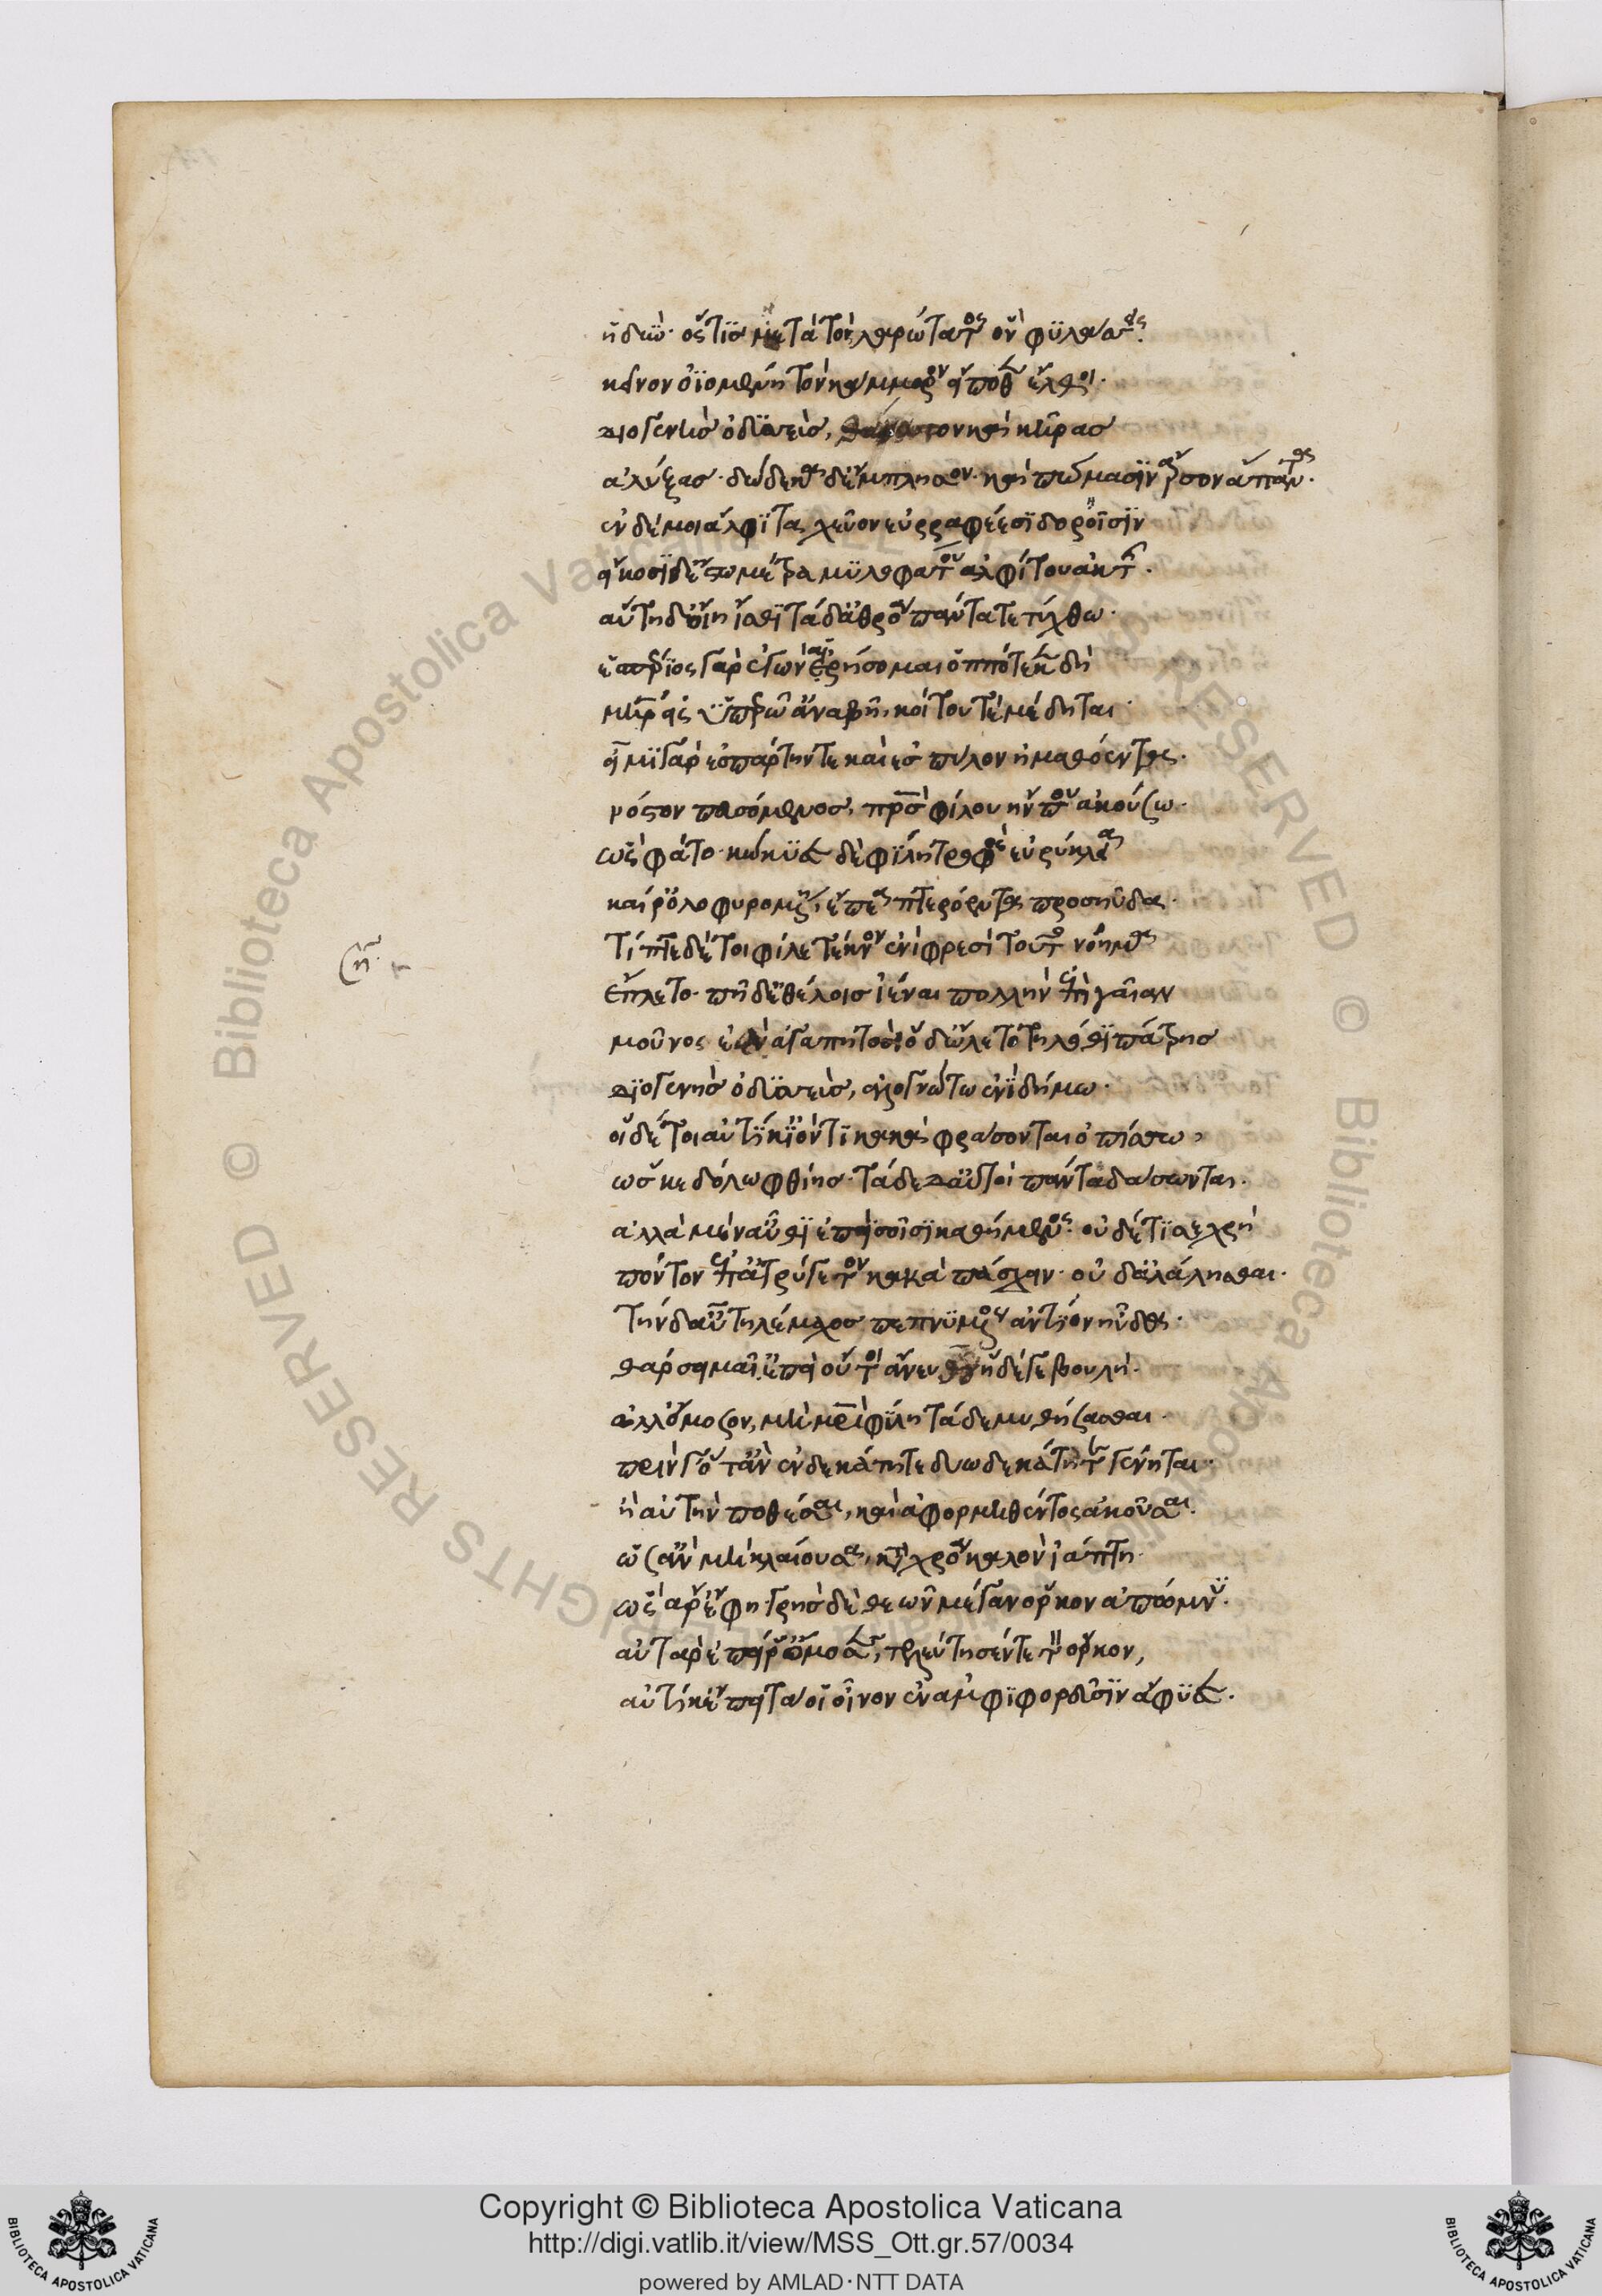 ἡδύν· ὅς τις μετὰ τὸν λαρώτατος ὃν φυλάσσεις.
κεῖνον ὀϊομένη τὸν κάμμορον εἴ ποθεν ἔλθοι.
διογενὴς ὀδυσσεὺς, θάνατον καὶ κῆρας
ἀλύξας· δώδεκα δ' ἔμπλησον· καὶ πώμασιν ἄρσον ἅπαντας.
ἐν δέ μοι ἄλφιτα χεῦον ἐϋρραφέεσσι δοροῖσιν
εἴκοσι δ' ἔστω μέτρα μυληφάτου ἀλφίτου ἀκτῆς.
αὐτὴ δ' οἴη ἴσθι τὰ δ' ἀθρόα πάντα τετύχθω.
ἑσπέριος γὰρ ἐγὼν αἱρήσομαι ὁππότε κεν δὴ
μήτηρ εἰς ὑπερῷ ἀναβῇ, κοίτου τε μέδηται.
εἶμι γὰρ ἐς σπάρτην τε καὶ ἐς πύλον ἠμαθόεντα.
νόστον πευσόμενος, πατρὸς φίλου ἤν που ἀκούσω.
ὣς φάτο· κώκυσεν δὲ φίλη τροφὸς εὐρύκλεια
καί ῥ' ὀλοφυρομένη, ἔπεα πτερόεντα προσηύδα.
τίπτε δέ τοι φίλε τέκνον ἐνὶ φρεσὶ τοῦτο νόημα
ἔπλετο· πῆ δ' ἐθέλεις ἰέναι πολλὴν ἐπὶ γαῖαν
μοῦνος ἐὼν ἀγαπητός ὁ δ' ὤλετο τηλόθι πάτρης
διογενὴς ὀδυσσεὺς, ἀλλογνώτω ἐνὶ δήμω.
οἱ δέ τοι αὐτίκ' ἰόντι κακὰ φράσονται ὀπίσσω,
ὥς κε δόλω φθίης· τάδε δ' αὐτοὶ πάντα δάσωνται.
ἀλλὰ μέν' αὖθι ἐπὶ σοῖσι καθήμενος· οὐδέ τί σε χρὴ
πόντον ἐπ' ἀτρύγετον κακὰ πάσχειν· οὐδ' ἀλάλησθαι.
τὴν δ' αὖ τηλέμαχος πεπνυμένος ἀντίον ηὔδα.
θάρσει μαῖ' ἐπεὶ οὔ τοι ἄνευ θεοῦ ἥδε γε βουλή.
ἀλλ' ὄμοσον, μὴ μητρὶ φίλη τάδε μυθήσασθαι.
πρίν γ' ὅτ' ἂν ἑνδεκάτη τε δυωδεκάτη τε γένηται.
ἢ αὐτὴν ποθέσαι, καὶ ἀφορμηθέντος ἀκοῦσαι.
ὡς ἂν μὴ κλαίουσα, κατὰ χρόα καλὸν ἰάπτη.
ὣς ἄρ' ἔφη· γρηῢς δὲ θεῶν μέγαν ὅρκον ἀπόμνυ.
αὐτὰρ ἐπεί ῥ' ὄμοσεν, τελεύτησέν τε τὸν ὅρκον,
αὐτίκ' ἔπειτα οἱ οἶνον ἐν ἀμφιφορεῦσιν ἄφυσεν.
Copyright © Biblioteca Apostolica Vaticana
http://digi.vatlib.it/view/MSS_Ott.gr.57/0034
powered by AMLAD·NTT DATA